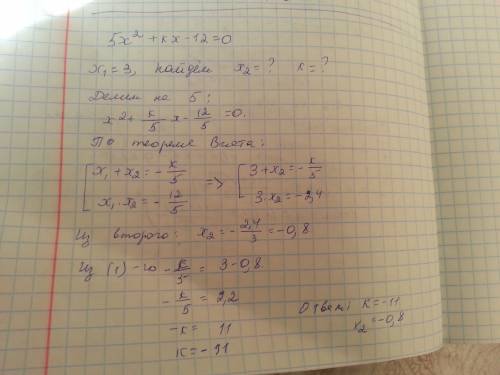 5x² + кx - 12 = 0
x₁ = 3, найдём x₂ = ? к = ?
Делим на 5:
x² + к/5 x - 12/5 = 0.
По теореме Виета:
[ x₁ + x₂ = - к/5 => [ 3 + x₂ = - к/5
x₁ · x₂ = - 12/5 3 · x₂ = - 2,4
Из второго: x₂ = - 2,4/3 = - 0,8
Из (1) - го - к/5 = 3 - 0,8.
- к/5 = 2,2
- к = 11
к = - 11
Ответ: к = - 11
x₂ = - 0,8